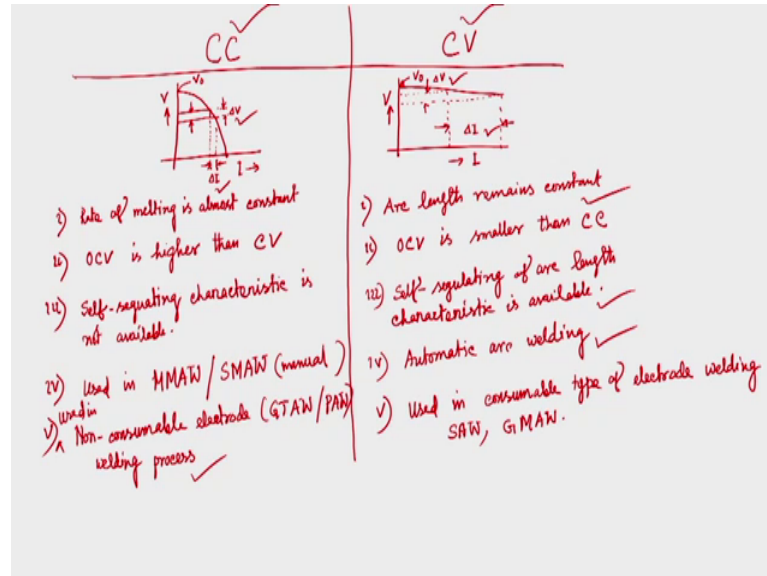 CC
CV
V₀
V
ΔV
ΔI
I
V₀
ΔV
V
ΔI
I
i) Rate of melting is almost constant
ii) OCV is higher than CV
iii) Self-regulating characteristic is
not available.
iv) Used in MMAW/SMAW (manual)
v) used in Non-consumable electrode (GTAW/PAW)
welding process
i) Arc length remains constant
ii) OCV is smaller than CC
iii) Self-regulating of arc length
characteristic is available.
iv) Automatic arc welding
v) Used in consumable type of electrode welding
SAW, GMAW.